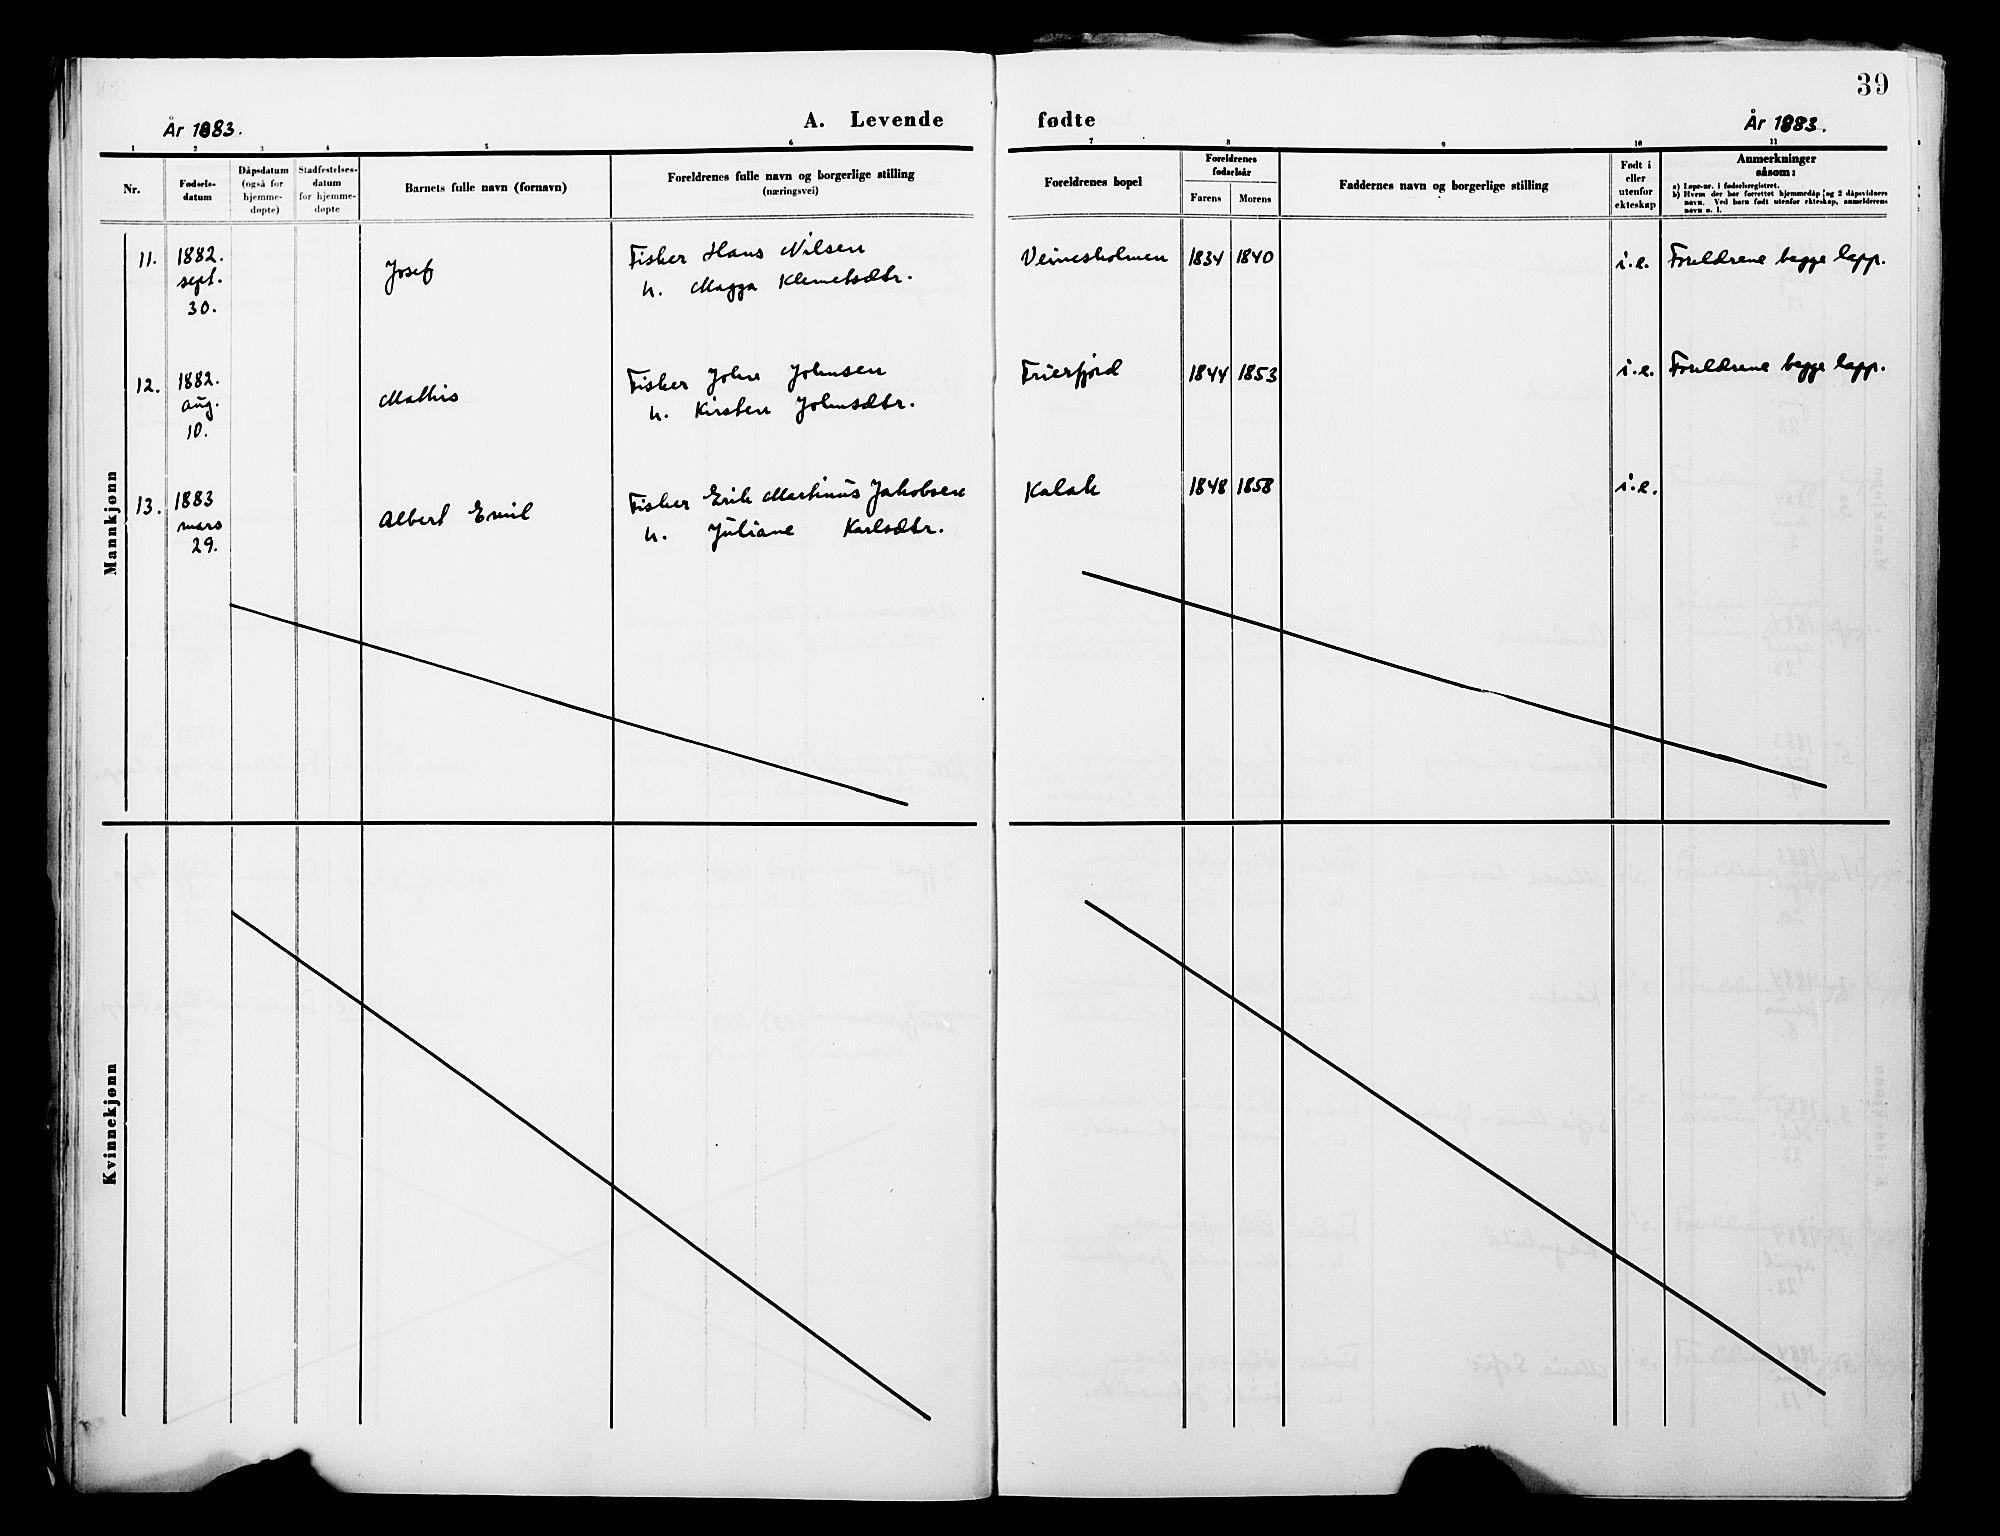 39
År 1883.
A. Levende
fødte
År 1883.
1 2 3 4 5 6 7 8 9 10 11
Nr.
Fødsels-
datum
Dåpsdatum
(også for
hjemme-
døpte)
Stadfestelses-
datum
for hjemme-
døpte
Barnets fulle navn (fornavn)
Foreldrenes fulle navn og borgerlige stilling
(næringsvei)
Foreldrenes bopel
Foreldrenes
fødselsår
Farens
Morens
Faddernes navn og borgerlige stilling
Født i
eller
utenfor
ekteskap
Anmerkninger
såsom:
a) Løpe-nr. i fødselsregistret.
b) Hvem der har forrettet hjemmedåp og 2 dåpsvidners
navn. Ved barn født utenfor ekteskap, anmelderens
navn o. l.
Mannkjønn
11.
1882.
sept.
30.
Josef
Fisker Hans Nilsen
h. Magga Klemetsdtr.
Veinesholmen
1834 1840
i.e.
Foreldrene begge lapp.
12.
1882.
aug.
10.
Mathis
Fisker John Johnsen
h. Kirsten Johnsdtr.
Frierfjord
1844 1853
i.e.
Foreldrene begge lapp.
13.
1883
mars
29.
Albert Emil
Fisker Erik Martinus Jakobsen
h. Juliane Karlsdtr.
Kalak
1848 1858
i.e.
Kvinnekjønn